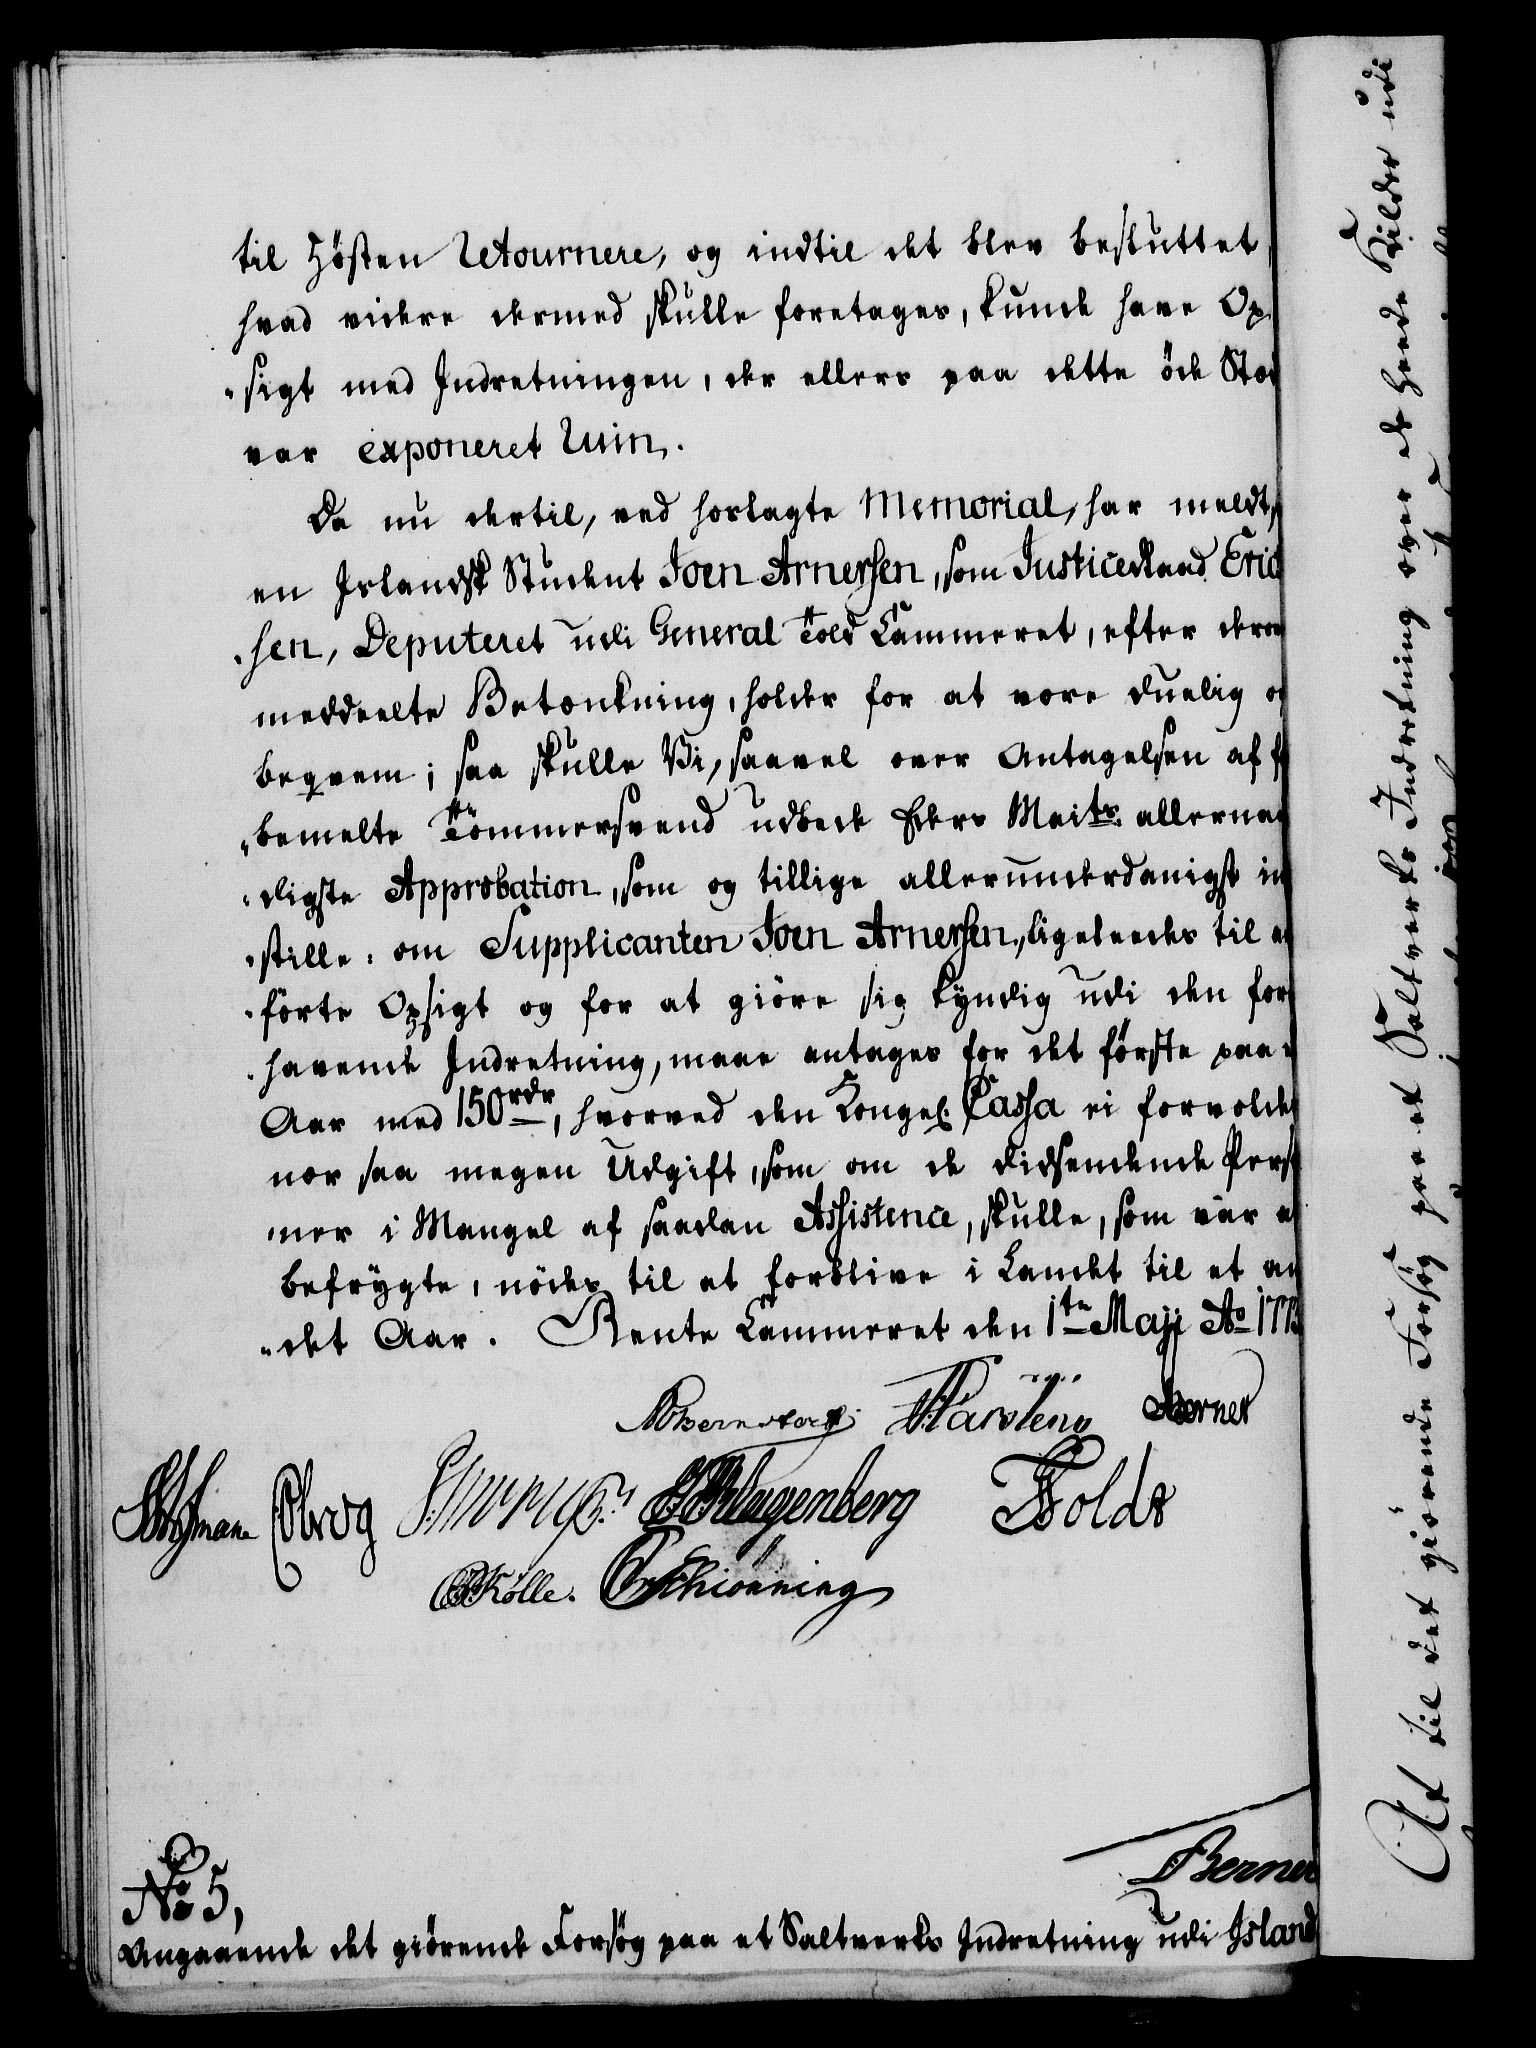 til Hösten Retournere, og indtil det blev besluttet
hvad videre dermed skulle foretages, kunde have Op-
„sigt med Indretningen, der ellers paa dette öde Sted
var exponeret Ruin.
Da nu dertil, ved hoslagte Memorial, har meldt
en Islandsk Student Joen Arnessen, som Justicedraad Eric
„sen, Deputeret udi General Told Cammeret, efter derom
meddeelte Betænkning, holder for at være duelig og
beqvem; saa skulle Vi, saavel over Antagelsen af f
„bemelte Tömmersvend udbede Eders Maits. allernaa
„digste Approbation, som og tillige allerunderdanigst in
„stille: om Supplicanten Joen Arnessen, ligeleedes til
„förte Opsigt og for at giöre sig kyndig udi den for
„havende Indretning, maae antages for det förste paa
Aar med 150 rdr, hvorved den Kongel. Cassa ei forvoldes
nær saa megen Udgift, som om de didsendende Perso
„ner i Mangel af saadan Assistence, skulle, som var at
befrygte, nödes til at forblive i Landet til et an
„det Aar. Rente Cammeret den 1te Maji Ao 1773
Bernstorff Karstens Berner
Cbrog Klagenberg Holdt
Kölle. Schiönning
Berner
No 5,
Angaaende det giörende Forsög paa et Saltverks Indretning udi Island
At til det giörende Forsög paa et Saltverks Indretning over de heede Kilder udi